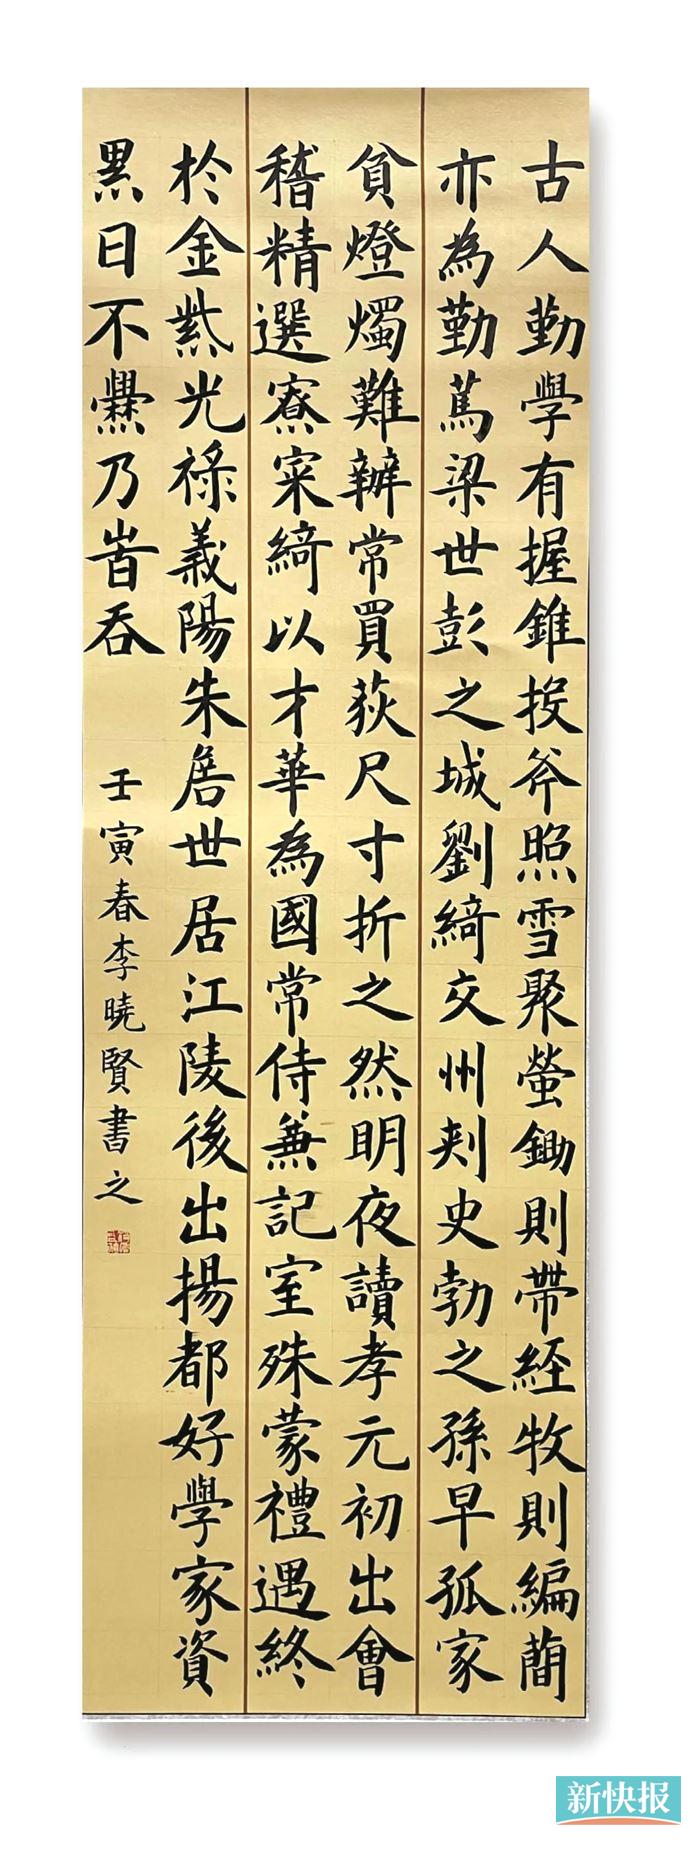 古人勤學有握錐投斧照雪聚螢鋤則帶経牧則編蕳
亦為勤篤梁世彭之城劉綺交州刺史勃之孫早孤家
貧燈燭難辦常買荻尺寸折之然明夜讀孝元初出會
稽精選寮寀綺以才華為國常侍兼記室殊蒙禮遇終
於金紫光祿義陽朱詹世居江陵後出揚都好學家資
累日不爨乃旹吞
壬寅春李曉賢書之
新快报